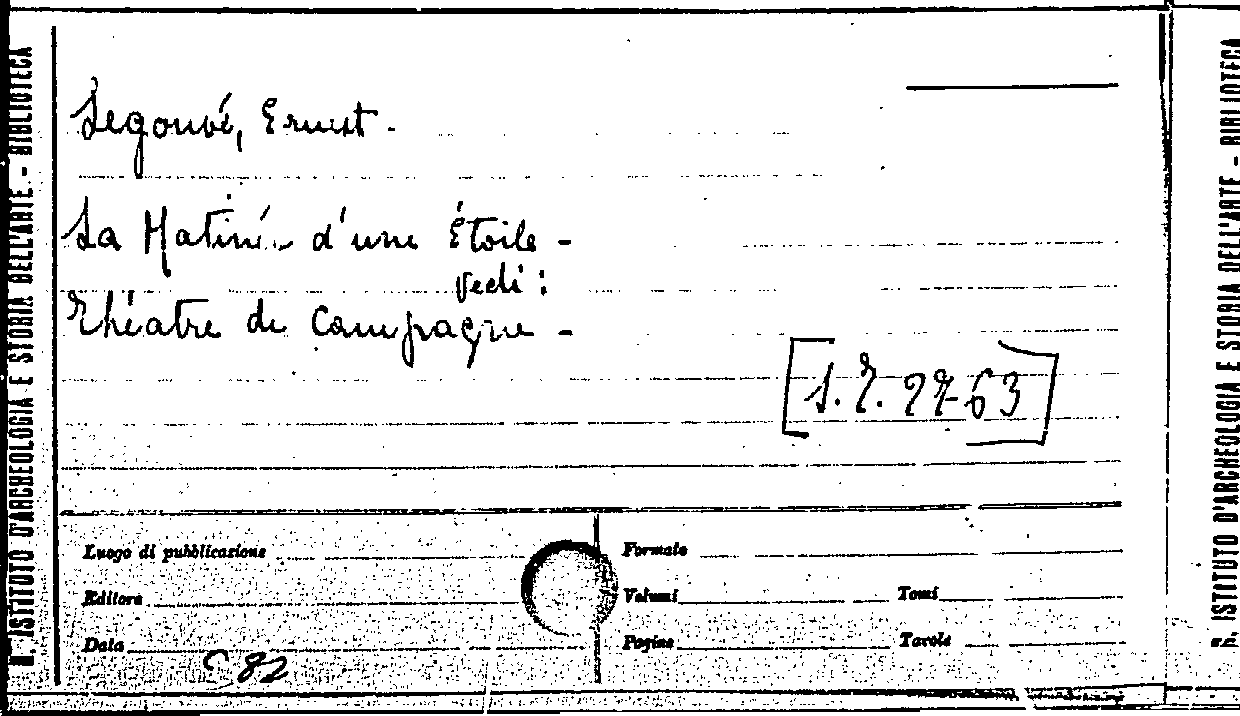 R. ISTITUTO D'ARCHEOLOGIA E STORIA DELL'ARTE - BIBLIOTECA
Legouvé, Ernest -
La Matinée d'une Étoile -
vedi :
Théatre de Campagne -
[S. T. 27-63]
Luogo di pubblicazione
Formato
Editore
Volumi
Tomi
Data
Pagine
Tavole
C 82
R. ISTITUTO D'ARCHEOLOGIA E STORIA DELL'ARTE - BIBLIOTECA